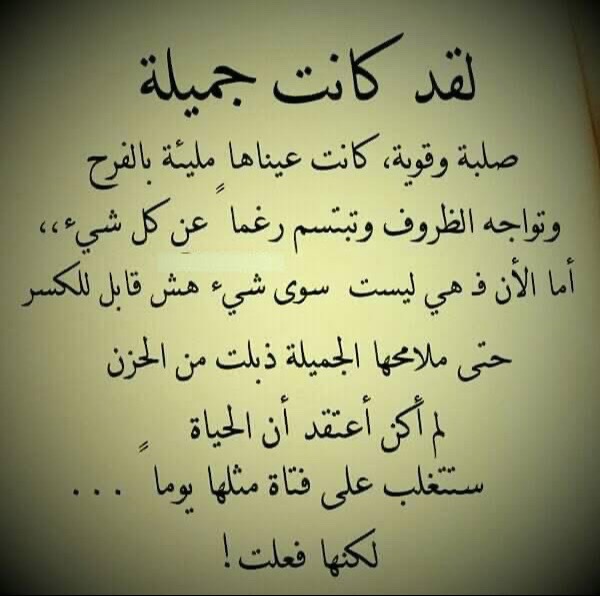 لقد كانت جميلة
صلبة وقوية، كانت عيناها مليئة بالفرح
وتواجه الظروف وتبتسم رغماً عن كل شيء،،
أما الأن فـ هي ليست سوى شيء هش قابل للكسر
حتى ملامحها الجميلة ذبلت من الحزن
لم أكن أعتقد أن الحياة
ستتغلب على فتاة مثلها يوماً ...
لكنها فعلت!